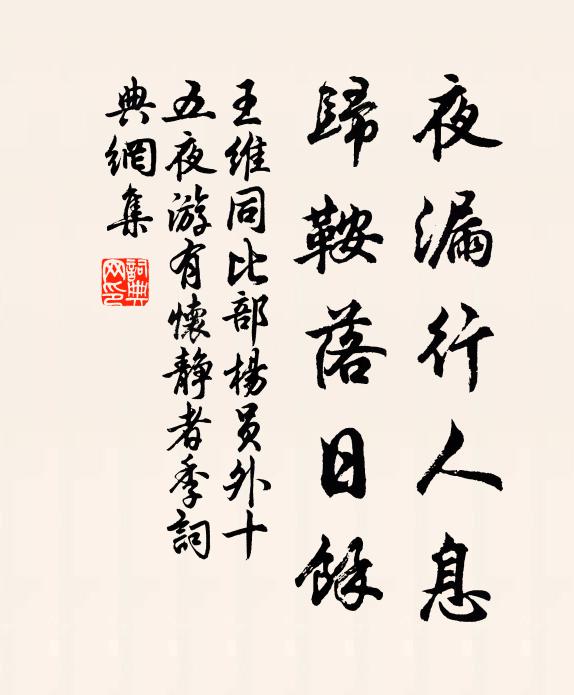 夜漏行人息
歸鞍落日餘
王維同比部楊員外十
五夜游有懷靜者季詞
典網集
詞典网印